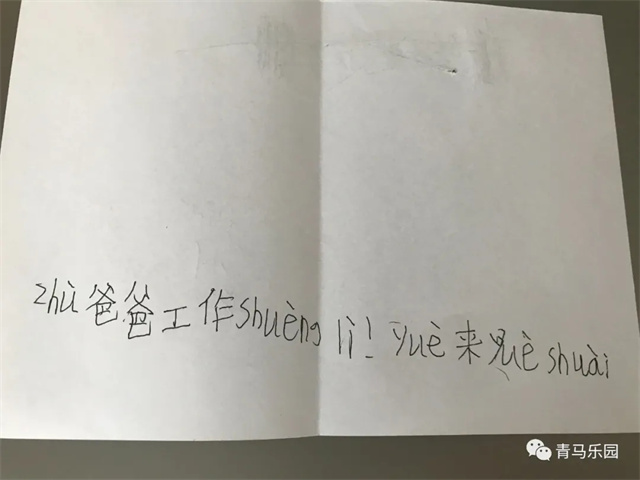 zhù爸爸工作shuèng lì! yuè来yuè shuài
青马乐园